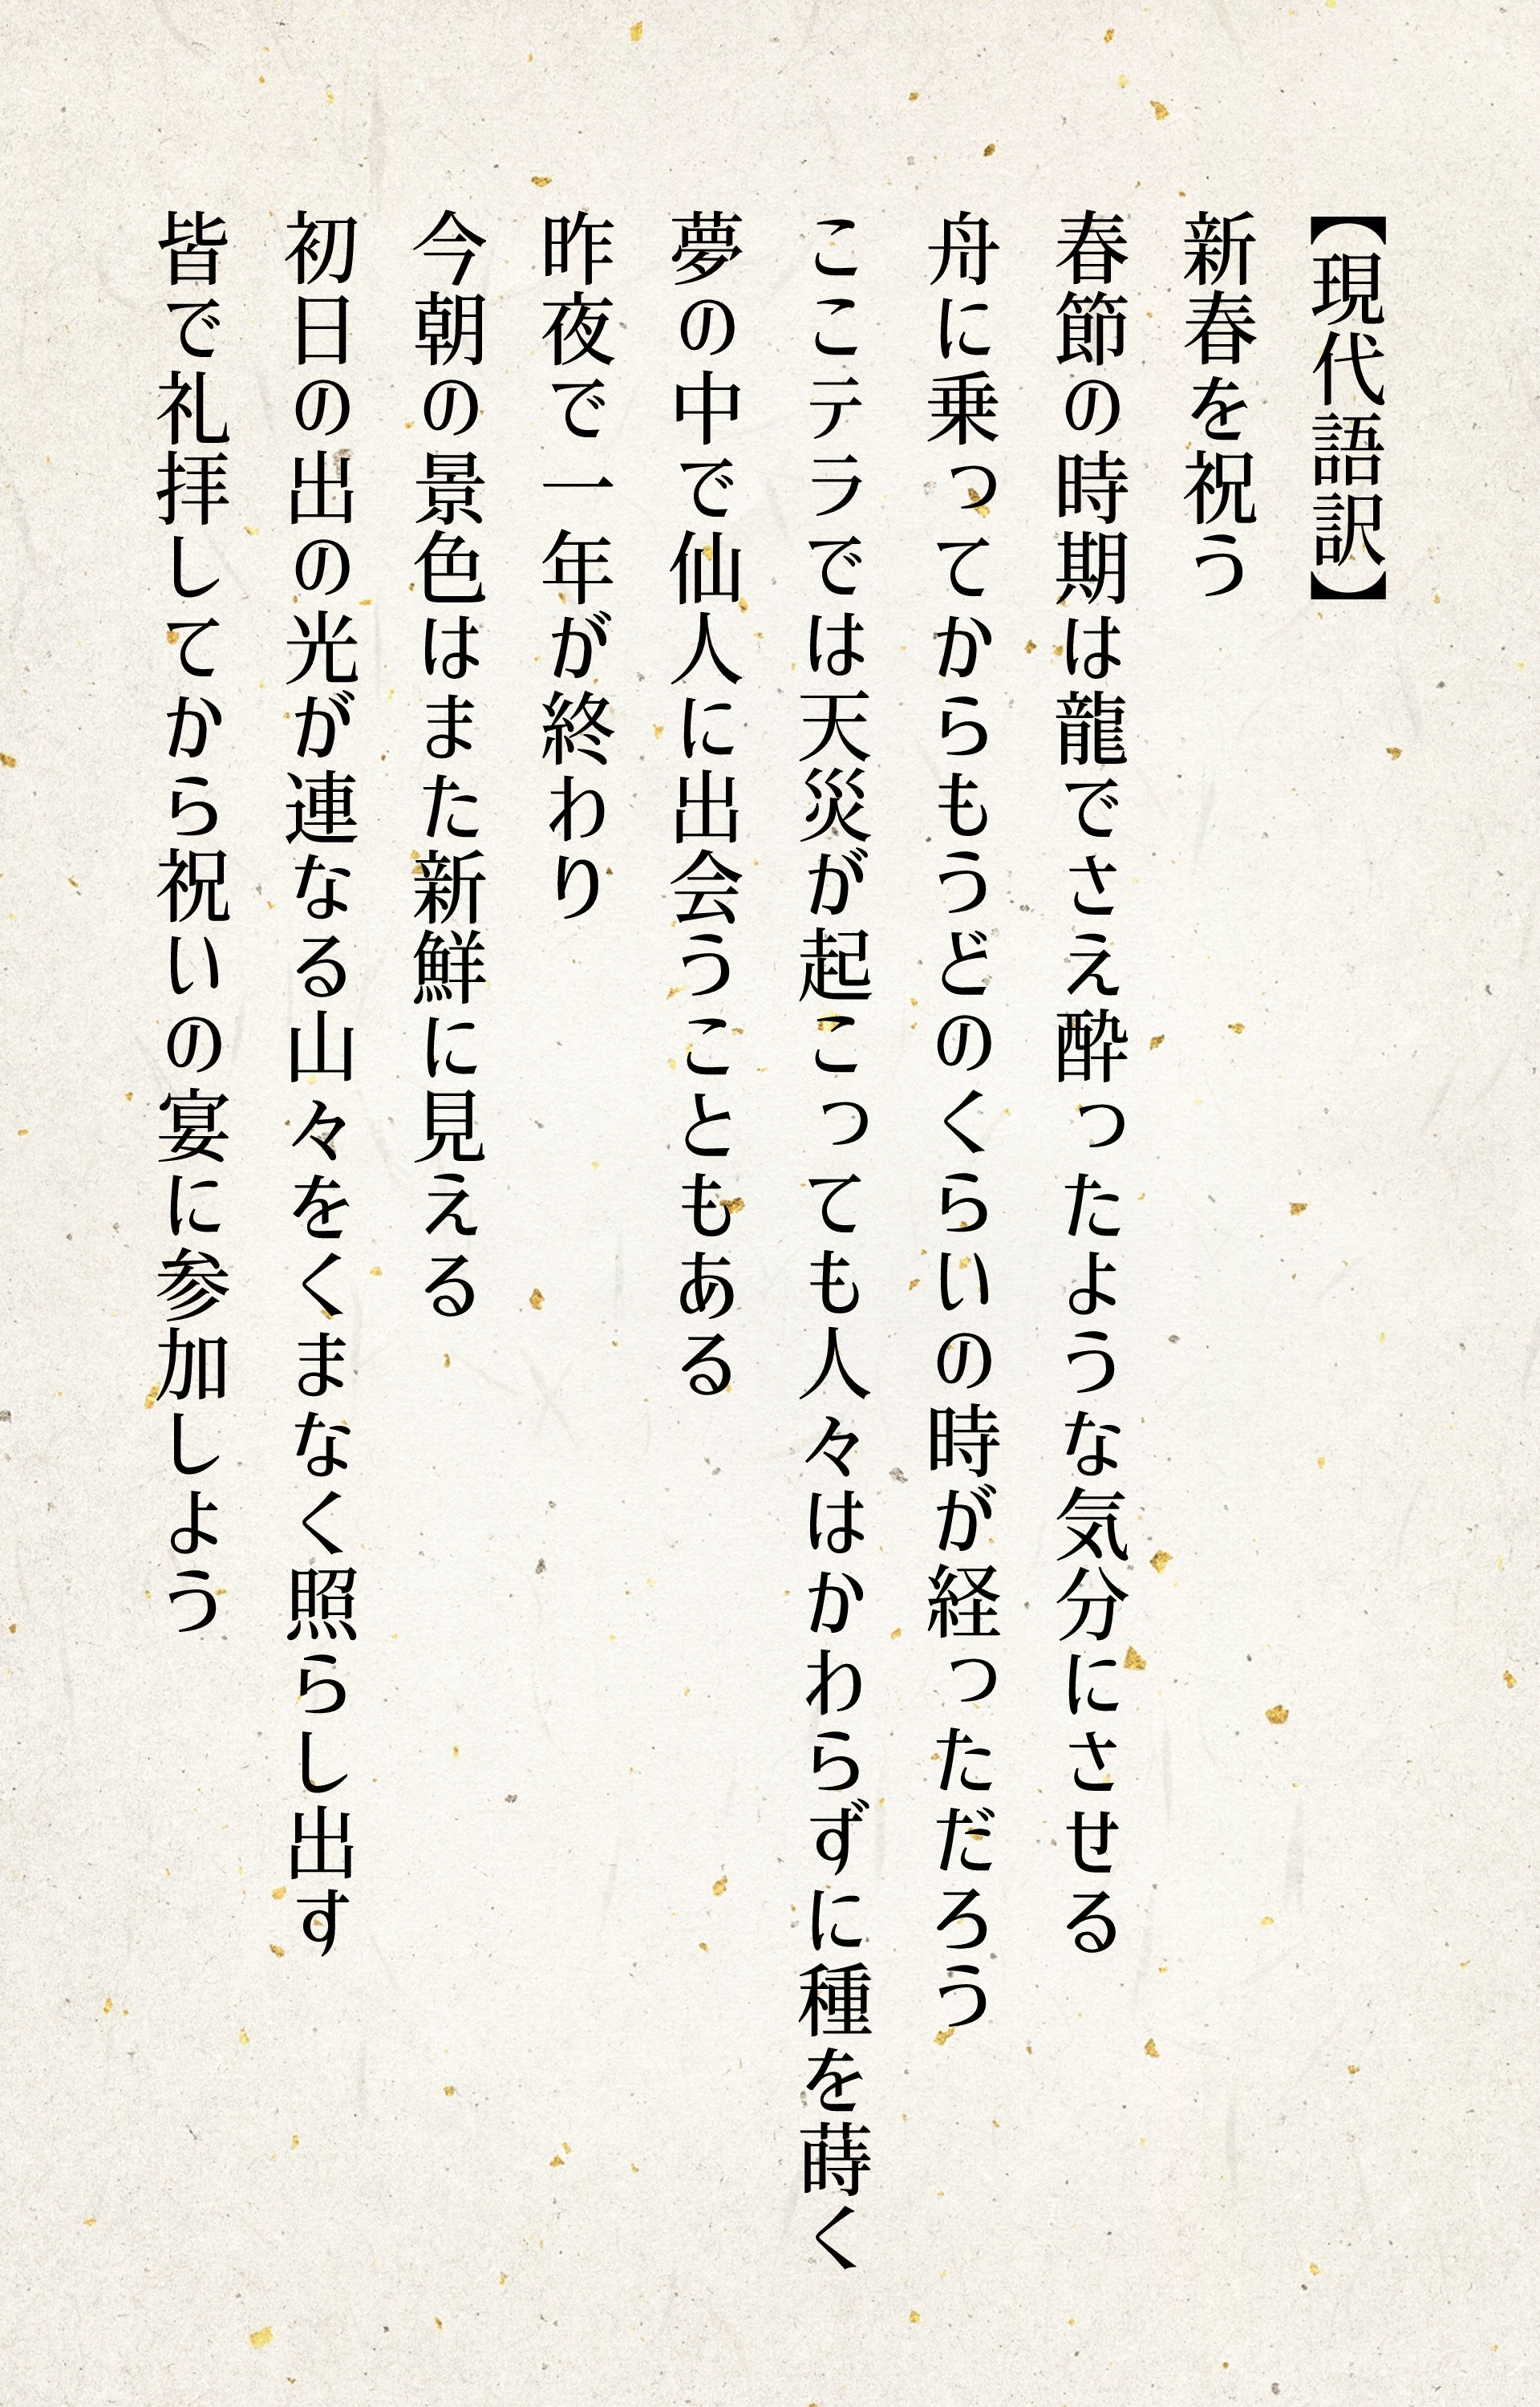 【現代語訳】
新春を祝う
春節の時期は龍でさえ酔ったような気分にさせる
舟に乗ってからもうどのくらいの時が経っただろう
ここテラでは天災が起こっても人々はかわらずに種を蒔く
夢の中で仙人に出会うこともある
昨夜で一年が終わり
今朝の景色はまた新鮮に見える
初日の出の光が連なる山々をくまなく照らし出す
皆で礼拝してから祝いの宴に参加しよう